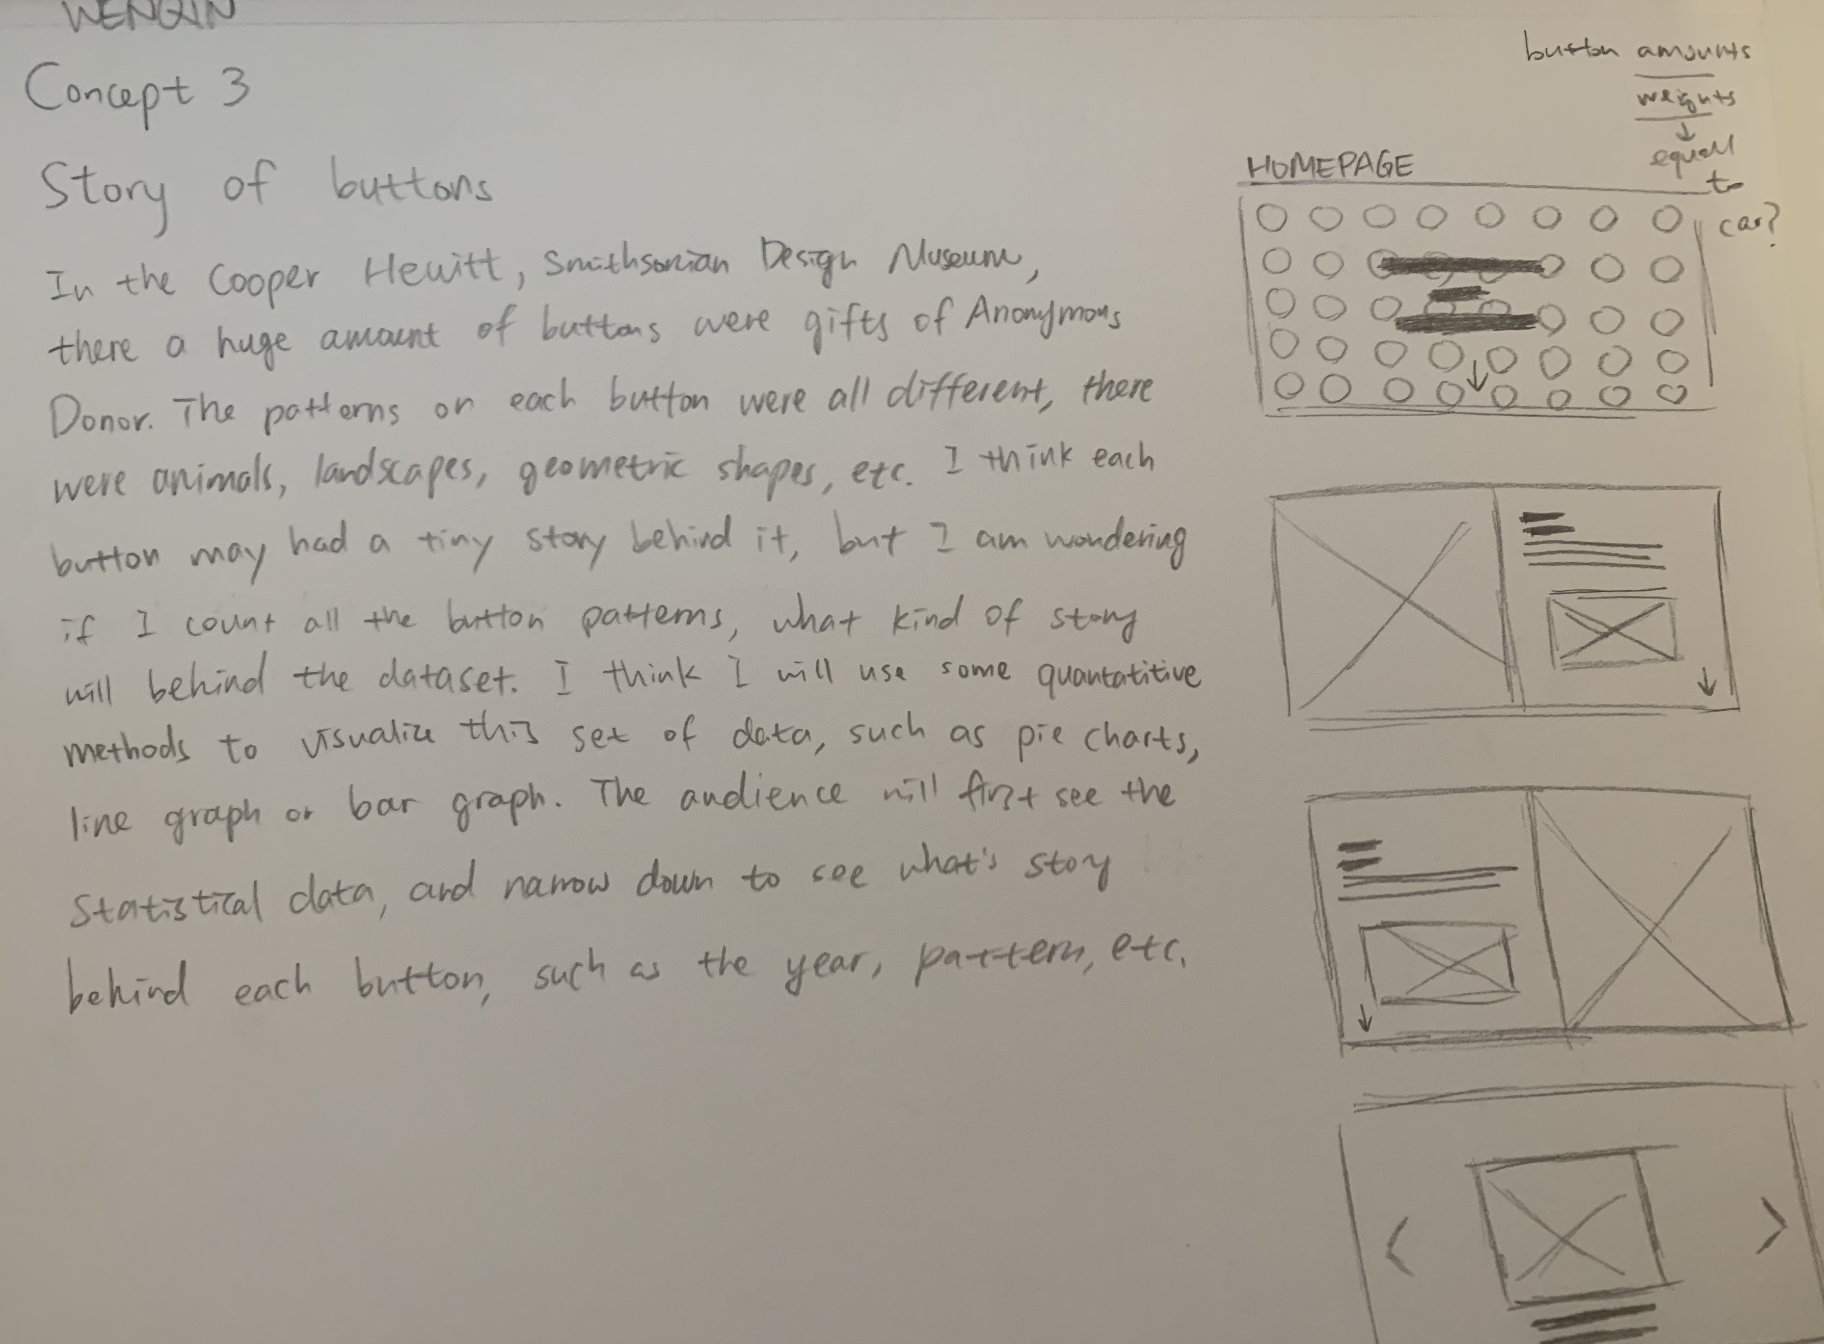 WENQIN
Concept 3
Story of buttons
In the Cooper Hewitt, Smithsonian Design Museum,
there a huge amount of buttons were gifts of Anonymous
Donor. The patterns on each button were all different, there
were animals, landscapes, geometric shapes, etc. I think each
button may had a tiny story behind it, but I am wondering
if I count all the button patterns, what kind of story
will behind the dataset. I think I will use some quantatitive
methods to visualize this set of data, such as pie charts,
line graph or bar graph. The audience will first see the
statistical data, and narrow down to see what's story
behind each button, such as the year, pattern, etc.
button amounts
weights
equall
to
car?
HOMEPAGE